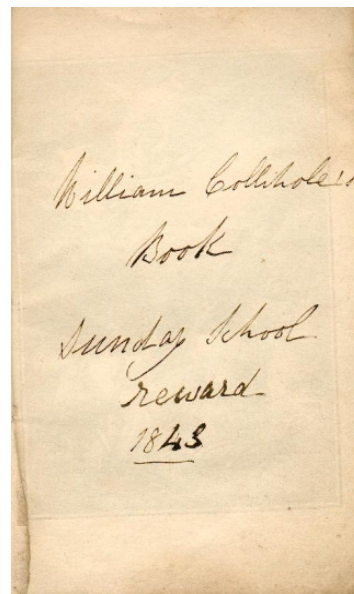 William Collihole's
Book
Sunday School
reward
1843